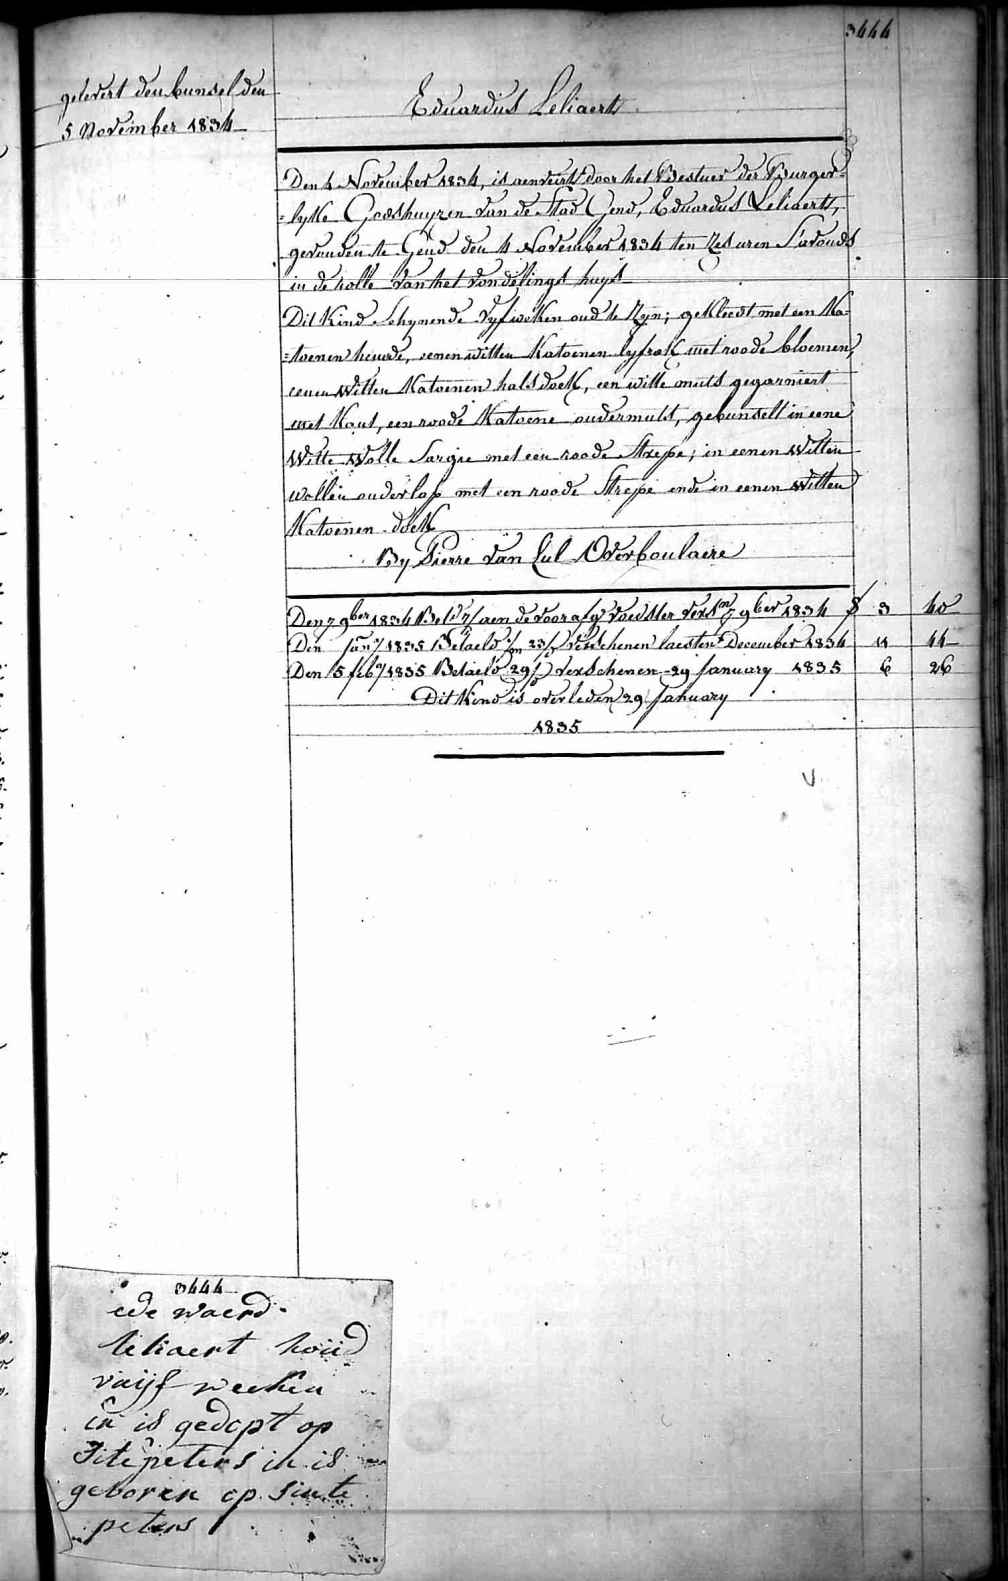 3444
gelevert den bunsel den
5 November 1834
Eduardus Leliaert
Den 4 November 1834, is aenveird door het Bestuer der Burger=
=lyke Godshuyzen van de Stad Gend, Eduardus Leliaert,
gevonden te Gend den 4 November 1834 ten zes uren S'avonds
in de rolle van het vondelings huys
Dit Kind Schynende vyf weken oud te Zyn; gekleed met een Ka=
=toenen hemde, eenen witten Katoenen lyfrok met roode bloemen,
eenen Witten Katoenen halsdoek, een witte muts gegarniert
met Kant, een roode Katoene ondermuts, gebunselt in eene
Witte Wolle Sargie met een roode Strepe; in eenen Witten
wollen onderlap met een roode Strepe ende in eenen Witten
Katoenen doek
By Pierre van Lul Overboulaere
Den 7 9ber 1834 Bet aen de voorsg voedster versn 7 9ber 1834 3 40
Den Jany 1835 Betaeld 1/m 23/ verschenen laesten December 1834 11 44
Den 5 feby 1835 Betaeld 29/ verschenen 29 January 1835 6 26
Dit Kind is overleden 29 January
1835
3444
ede waerd
leliaert houd
vaijf weeken
in is gedopt op
Site peters in is
geboren op Sinte
peters